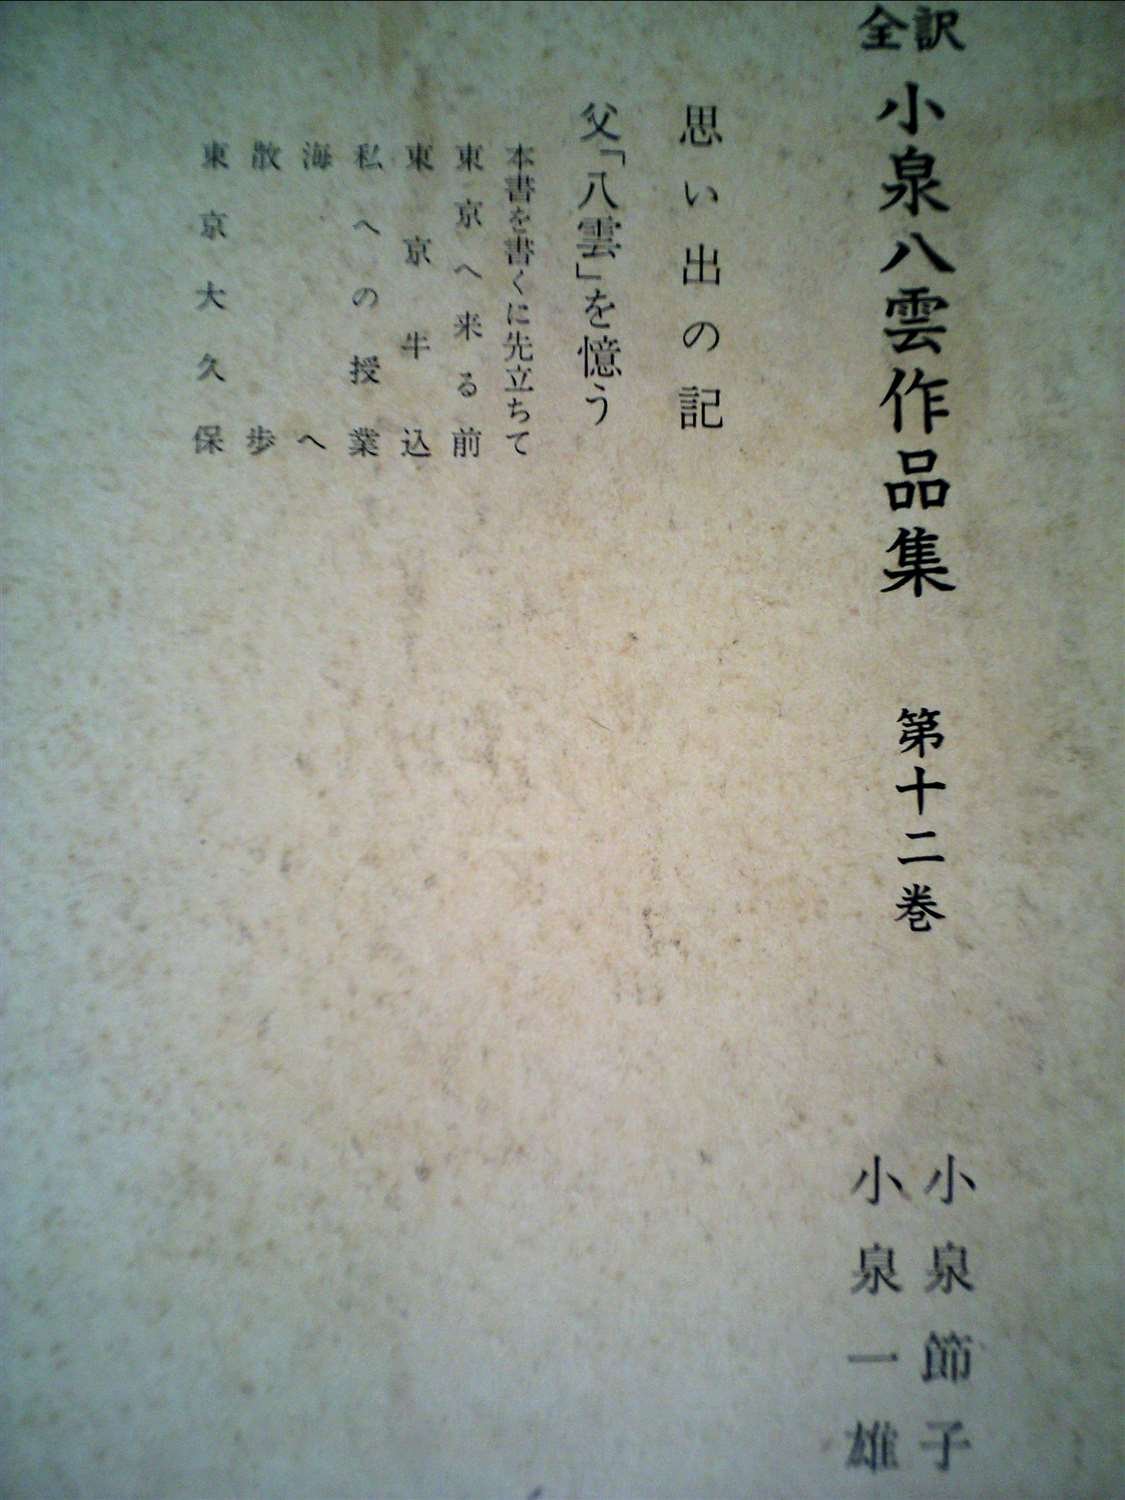 全訳 小泉八雲作品集 第十二巻
小泉節子
小泉一雄
思い出の記
父「八雲」を憶う
本書を書くに先立ちて
東京へ来る前
東京牛込
私への授業
海へ
散歩
東京大久保